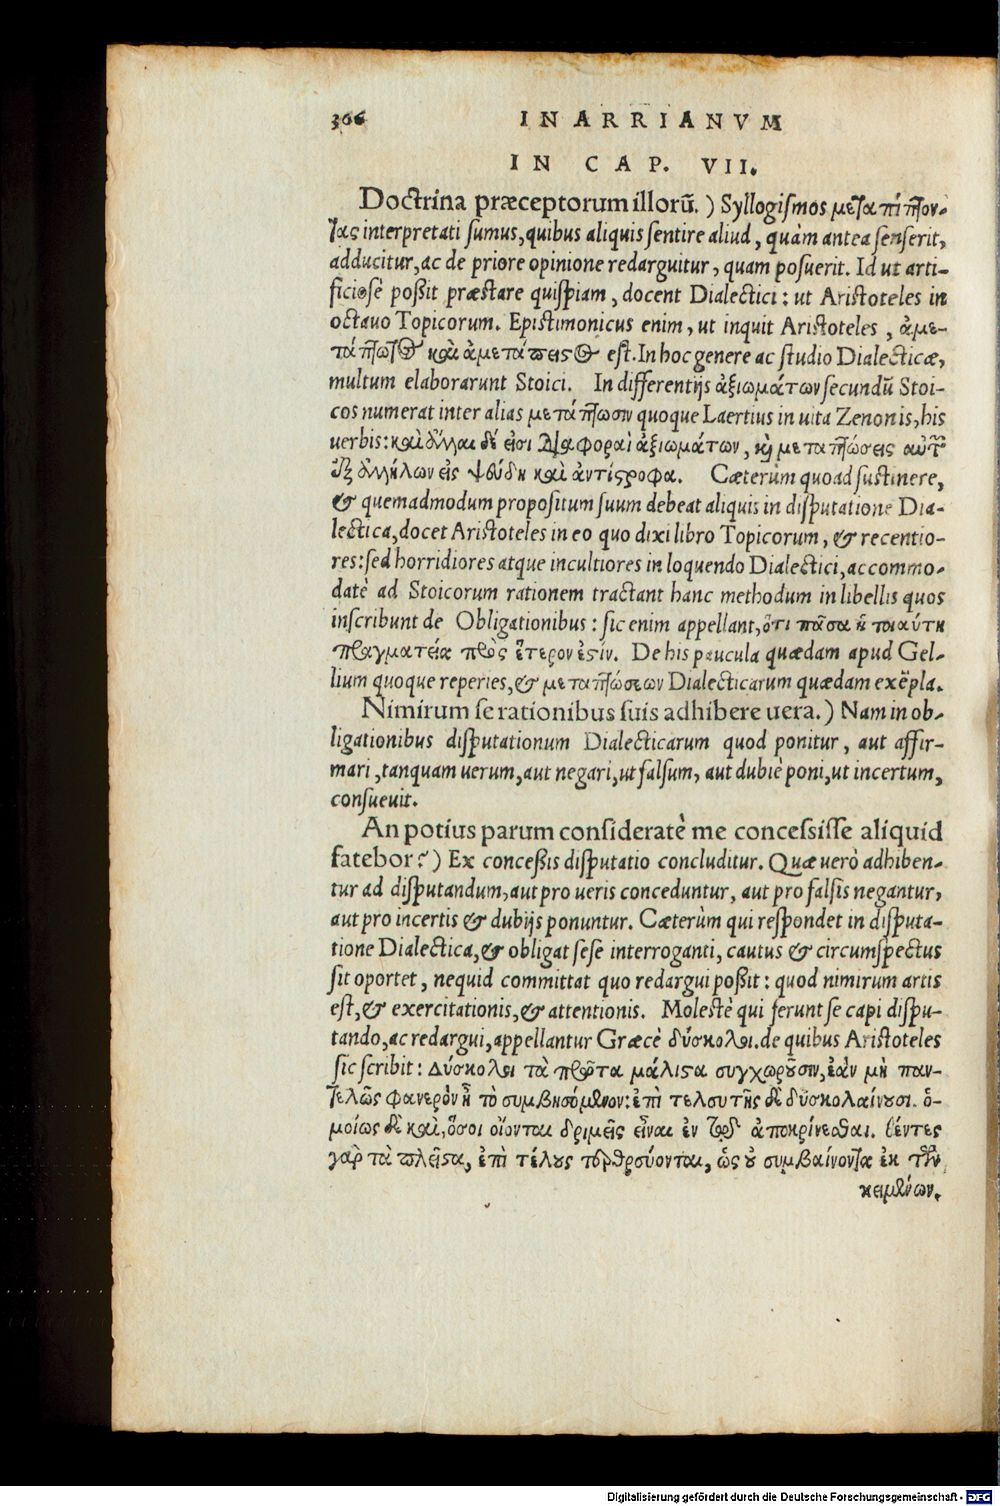 306 IN ARRIANVM
IN CAP. VII.
Doctrina præceptorum illorũ.) Syllogiſmos μεταπιπτον-
τας interpretati ſumus, quibus aliquis ſentire aliud, quàm antea ſenſerit,
adducitur, ac de priore opinione redarguitur, quam poſuerit. Id ut arti-
ficioſè poßit præſtare quiſpiam, docent Dialectici: ut Ariſtoteles in
octauo Topicorum. Epiſtimonicus enim, ut inquit Ariſtoteles, ἀμε-
τάπτωτος καὶ ἀμετάπειςος eſt. In hoc genere ac ſtudio Dialecticæ,
multum elaborarunt Stoici. In differentijs ἀξιωμάτων ſecundũ Stoi-
cos numerat inter alias μετάπτωσιν quoque Laertius in uita Zenonis, his
uerbis: καὶ ἄλλαι δέ εἰσι διαφοραὶ ἀξιωμάτων, καὶ μεταπτώσεις αὐτῶν
ἐξ ἀλλήλων εἰς ψεύδη καὶ ἀντίςροφα. Cæterùm quoad ſuſtinere,
& quemadmodum propoſitum ſuum debeat aliquis in diſputatione Dia-
lectica, docet Ariſtoteles in eo quo dixi libro Topicorum, & recentio-
res: ſed horridiores atque incultiores in loquendo Dialectici, accommo-
datè ad Stoicorum rationem tractant hanc methodum in libellis quos
inſcribunt de Obligationibus: ſic enim appellant, ὅτι πᾶσα ἡ τοιαύτη
πραγματεία πρὸς ἕτερον ἐςίν. De his paucula quædam apud Gel-
lium quoque reperies, & μεταπτώσεων Dialecticarum quædam exẽpla.
Nimirum ſe rationibus ſuis adhibere uera.) Nam in ob-
ligationibus diſputationum Dialecticarum quod ponitur, aut affir-
mari, tanquam uerum, aut negari, ut falſum, aut dubiè poni, ut incertum,
conſueuit.
An potius parum conſideratè me conceſsiſſe aliquid
fatebor?) Ex conceßis diſputatio concluditur. Quæ uerò adhiben-
tur ad diſputandum, aut pro ueris conceduntur, aut pro falſis negantur,
aut pro incertis & dubijs ponuntur. Cæterùm qui reſpondet in diſputa-
tione Dialectica, & obligat ſeſe interroganti, cautus & circumſpectus
ſit oportet, nequid committat quo redargui poßit: quod nimirum artis
eſt, & exercitationis, & attentionis. Moleſtè qui ferunt ſe capi diſpu-
tando, ac redargui, appellantur Græcè δύσκολοι. de quibus Ariſtoteles
ſic ſcribit: Δύσκολοι τὰ πρῶτα μάλιςα συγχωροῦσιν, ἐὰν μὴ παν-
τελῶς φανερὸν ᾖ τὸ συμβησόμενον: ἐπὶ τελευτῆς δὲ δυσκολαίνουσι. ὁ-
μοίως δὲ καὶ, ὅσοι οἴονται δριμεῖς εἶναι ἐν τῷ ἀποκρίνεσθαι. θέντες
γὰρ τὰ πλεῖςα, ἐπὶ τέλους τερθρεύονται, ὡς οὐ συμβαίνοντα ἐκ τῶν
κειμένων.
Digitalisierung gefördert durch die Deutsche Forschungsgemeinschaft - DFG